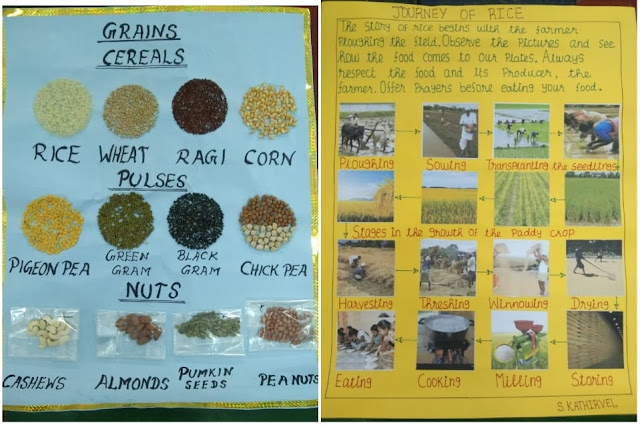 GRAINS
CEREALS
RICE WHEAT RAGI CORN
PULSES
PIGEON PEA GREEN GRAM BLACK GRAM CHICK PEA
NUTS
CASHEWS ALMONDS PUMKIN SEEDS PEANUTS
JOURNEY OF RICE
The story of rice begins with the farmer
Ploughing the field. Observe the Pictures and see
how the food comes to our Plates. Always
respect the food and its Producer, the
farmer. Offer Prayers before eating your food.
Ploughing Sowing Transplanting the seedlings
Stages in the growth of the Paddy CROP
Harvesting Threshing Winnowing Drying
Eating Cooking Milling Storing
S.KATHIRVEL